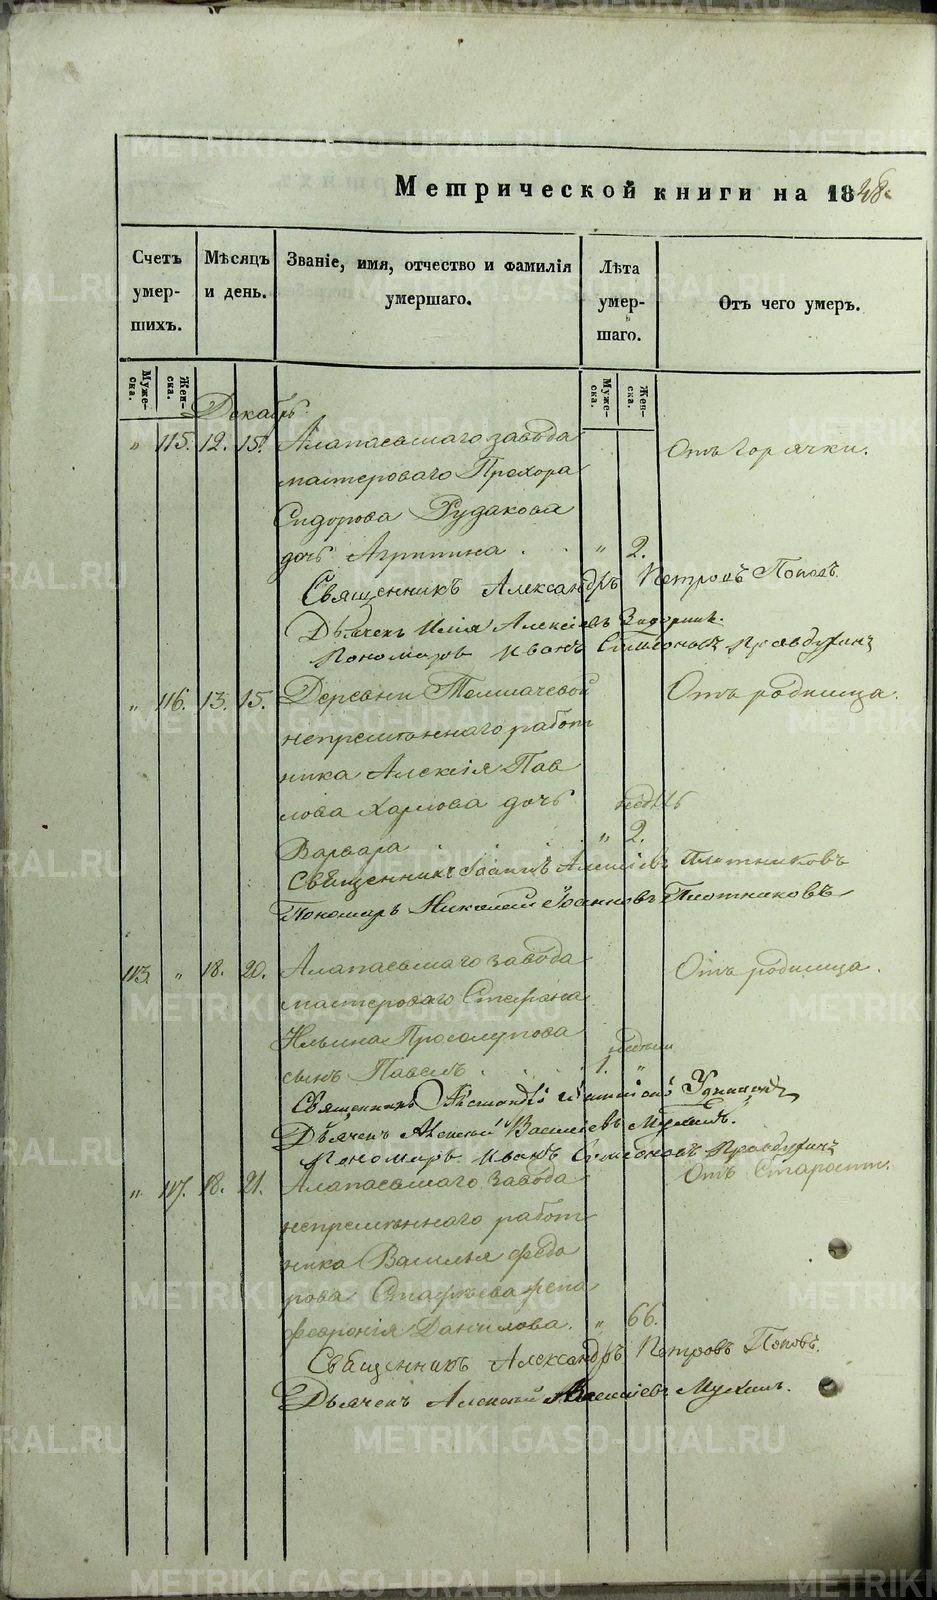 Метрической книги на 1848.
Счетъ умер- шихъ.
Мѣсяцъ и день.
Званіе, имя, отчество и фамилія умершаго.
Лѣта умер- шаго.
Отъ чего умеръ.
Муже- ска.
Жен- ска.
Муже- ска.
Жен- ска.
Декабрь
" 115. 12. 15. Алапаевскаго завода Отъ горячки.
мастероваго Прохора
Сидорова Рудакова
дочь Агрипина . . " 2.
Священникъ Александръ Петровъ Поповъ.
Дьячекъ Илія Алексіевъ
Пономарь Иванъ Симеоновъ Правдухинъ
" 116. 13. 15. Деревни Толмачевой Отъ родимца.
непремѣннаго работ
ника Алексія Пав
лова Харлова дочь недѣль
Варвара . . " 2.
Священникъ Іоаннъ Алексіевъ Плотниковъ
Пономарь Николай Іоанновъ Плотниковъ
113. " 18. 20. Алапаевскаго завода Отъ родимца.
мастероваго Стефана
Ильина Проголупова
сынъ Павелъ . . . 1. "
Священникъ
Дьячекъ Алексій Василіевъ Мухинъ.
Пономарь Иванъ Симеоновъ Правдухинъ
" 117. 18. 21. Алапаевскаго завода Отъ Старости.
непремѣннаго работ
ника Василья Федо
рова жена
Февронія Данилова. " 66.
Священникъ Александръ Петровъ Поповъ.
Дьячекъ Алексій Василіевъ Мухинъ.
METRIKI.GASO-URAL.RU